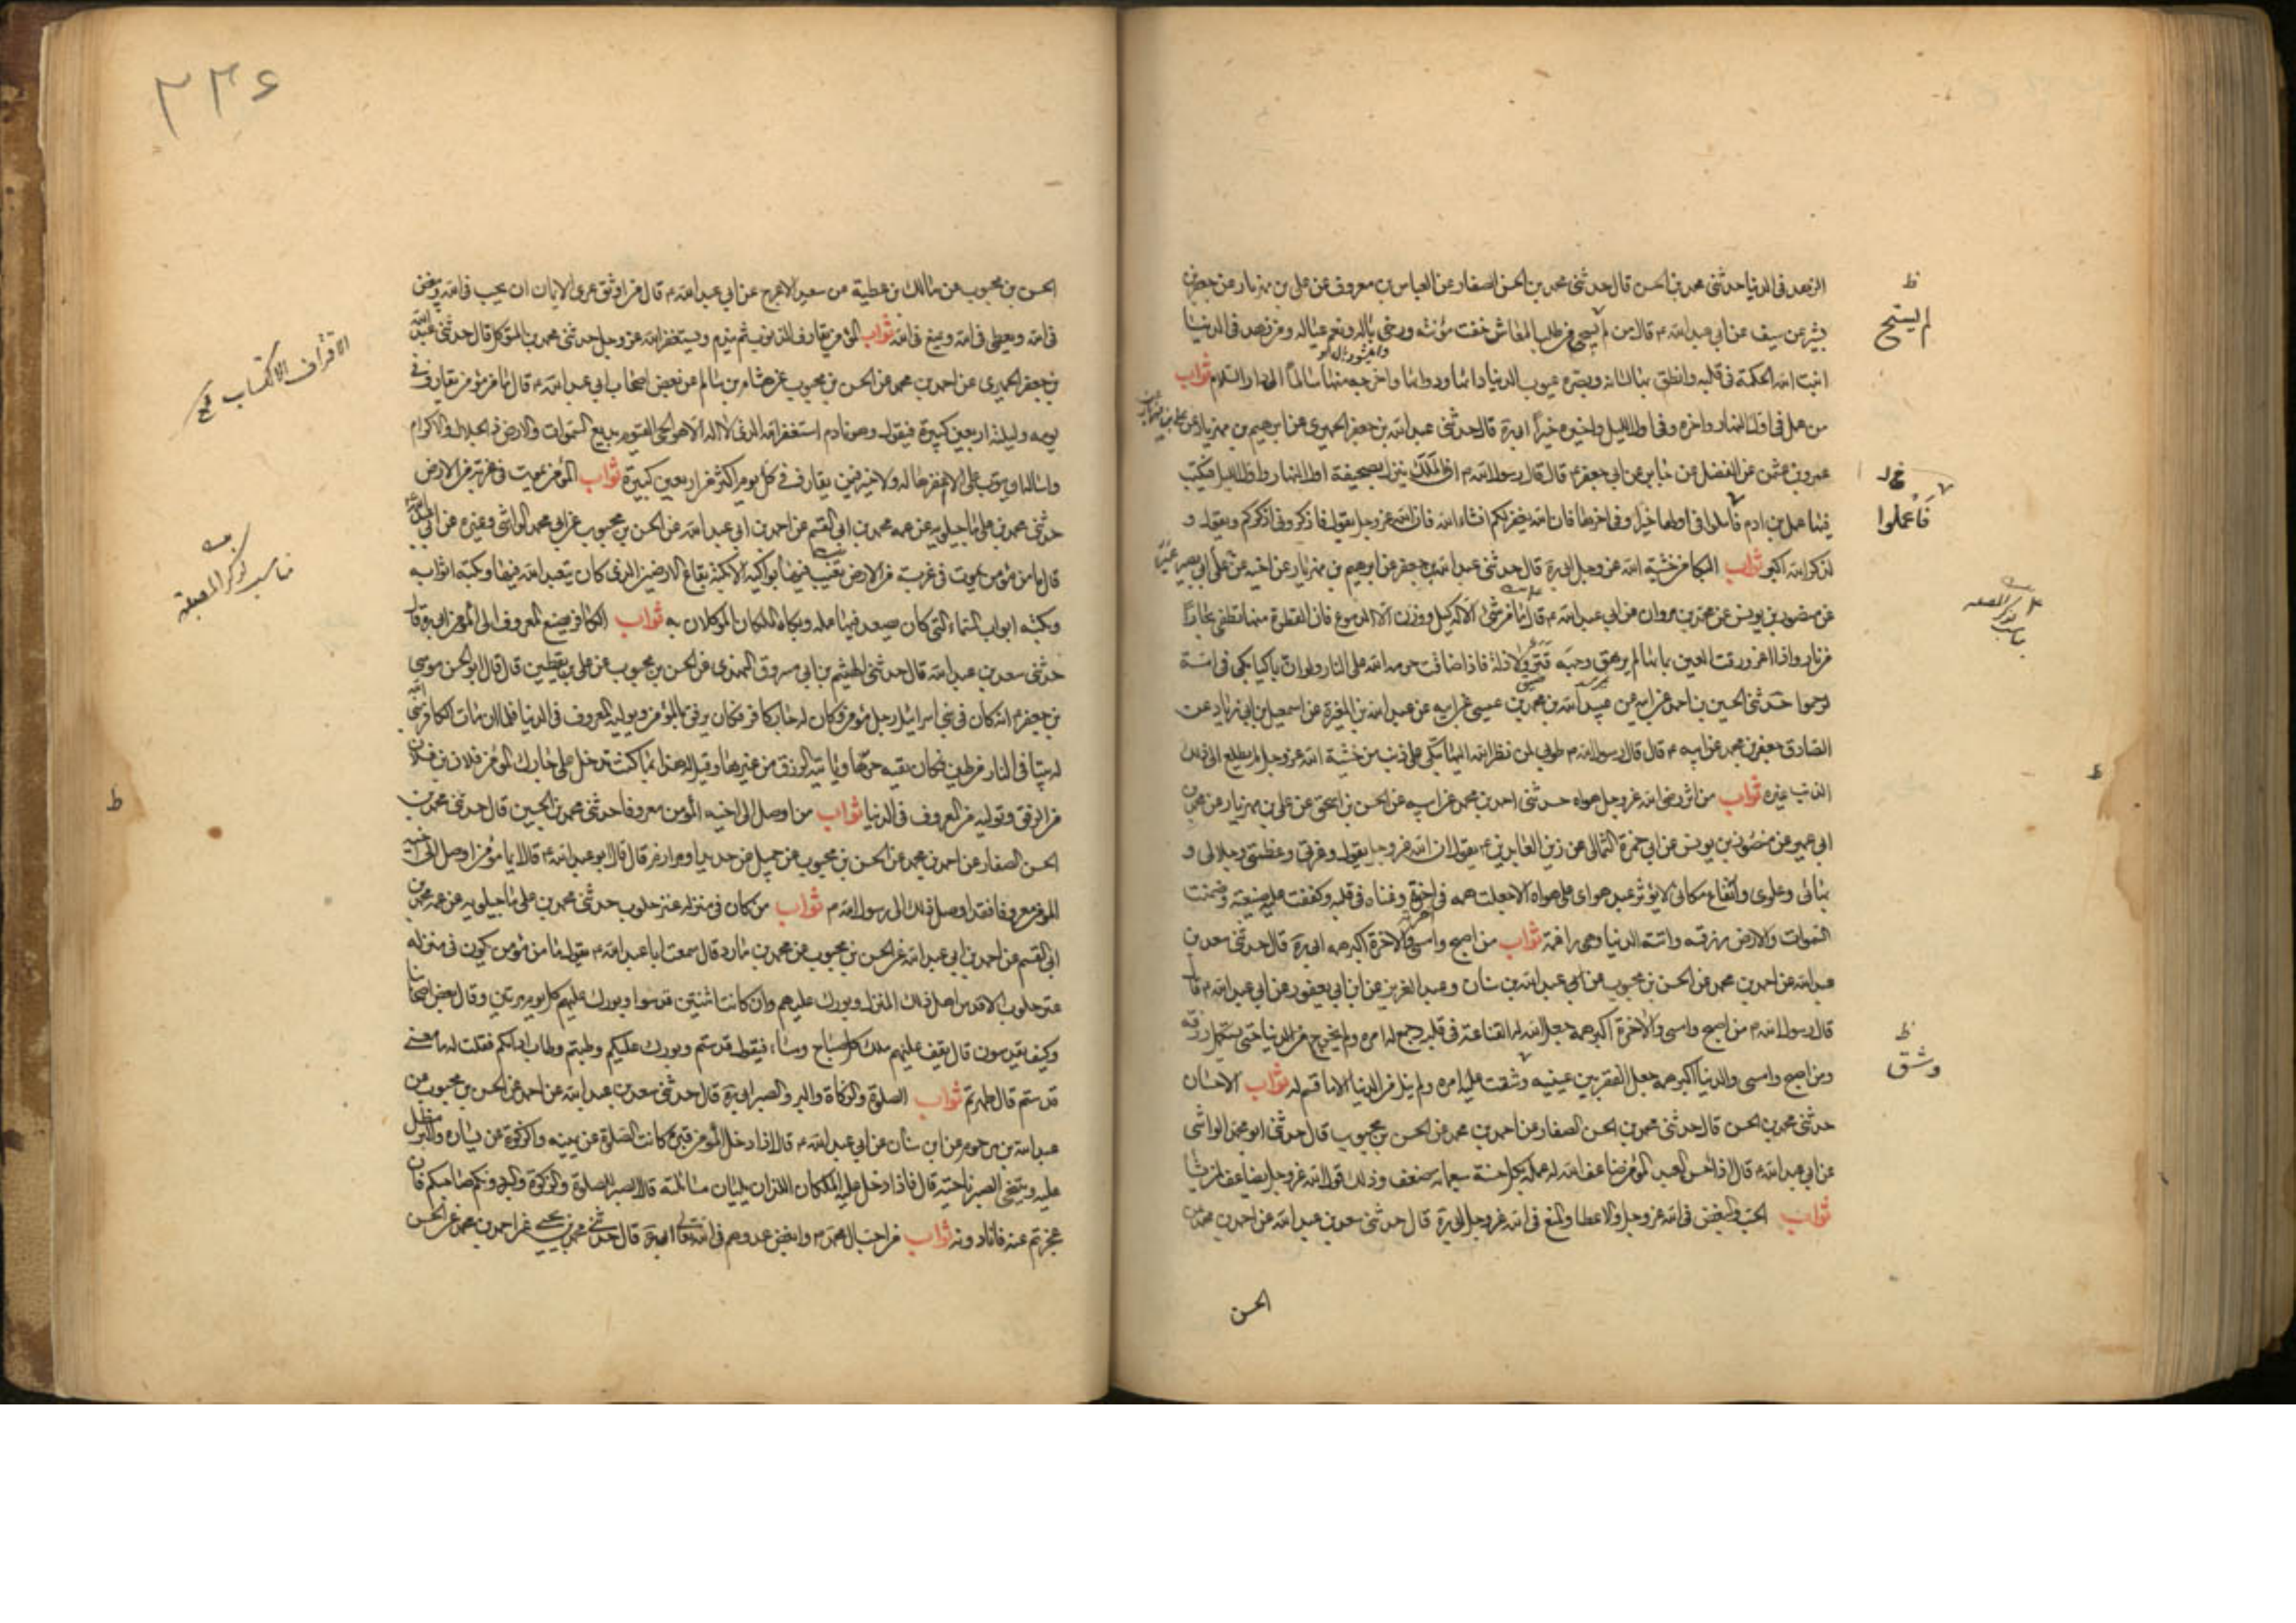 الزهد فى الدنيا حدثنى محمد بن الحسن قال حدثنى محمد بن الحسن الصفار عن العباس بن معروف عن على بن مهزيار عن جعفر بن
بشير عن سيف عن ابى عبد الله م قال من لم يستحى من طلب المعاش خفت مؤنته ورخى باله ونعم عياله ومن زهد فى الدنيا
اثبت الله الحكمة فى قلبه وانطق بها لسانه وبصره عيوب الدنيا دائها ودوائها واخرجه منها سالماً الى دار السلام ثواب
من عمل فى اول النهار واخره وفى اول الليل واخره خيراً ابى ره قال حدثنى عبد الله بن جعفر الحميرى عن ابرهيم بن مهزيار عن
عمرو بن عثمن عن المفضل عن جابر عن ابى جعفر م قال قال رسول الله م ان الملك ينزل بصحيفة اول النهار واول الليل فيكتب
فيها عمل بن ادم فاملوا فى اولها خيرا وفى اخرها فان الله يغفر لكم انشاء الله فان الله عز وجل يقول فاذكرونى اذكركم ويقول و
لذكر الله اكبر ثواب البكا من خشية الله عز وجل ابى ره قال حدثنى عبد الله بن جعفر عن ابرهيم بن مهزيار عن اخيه عن على
عن منصور بن يونس عن محمد بن مروان عن ابى عبد الله م قال ما من شئ الا له كيل ووزن الا الدموع فان القطرة منها تطفى بحاراً
من نار واذا اغرورقت العين بمائها لم يرهق وجهه قتر ولا ذلة فاذا فاضت حرمه الله على النار ولو ان باكيا بكى فى امة
لرحموا حدثنى الحسين بن احمد عن ابيه عن عبد الله بن محمد بن عيسى عن ابيه عن عبد الله بن المغيرة عن اسمعيل بن ابى زياد عن
الصادق جعفر بن محمد عن ابيه م قال قال رسول الله م طوبى لمن نظر الله اليها تبكى على ذنب من خشية الله عز وجل لم يطلع الى ذلك
الذنب غيره ثواب من اثر رضى الله عز وجل هواه حدثنى احمد بن محمد عن ابيه عن الحسن بن اسحق عن على بن مهزيار عن
ابى عمير عن منصور بن يونس عن ابى حمزة الثمالى عن زين العابدين م يقول ان الله عز وجل يقول وعزتى وعظمتى وجلالى و
بهائى وعلوى وارتفاع مكانى لا يؤثر عبد هواى على هواه الا جعلت همه فى اخرته وغناه فى قلبه وكففت عليه ضيعته وضمنت
السموات والارض رزقه واتته الدنيا وهى راغمة ثواب من اصبح وامسى والاخرة اكبر همه ابى ره قال حدثنى سعد بن
عبد الله عن احمد بن محمد عن الحسن بن محبوب عن ابى عبد الله بن سنان وعبد العزيز عن ابن ابى يعفور عن ابى عبد الله م قال
قال رسول الله م من اصبح وامسى والاخرة اكبر همه جعل الله له القناعة فى قلبه وجمع له امره ولم يخرج من الدنيا حتى يستكمل رزقه
ومن اصبح وامسى والدنيا اكبر همه جعل الفقر بين عينيه وشتت عليه امره ولم ينل من الدنيا الا ما قسم له ثواب الاحسان
حدثنى محمد بن الحسن قال حدثنى محمد بن الحسن الصفار عن احمد بن محمد عن الحسن بن محبوب قال حدثنى ابو محمد الوابشى
عن ابى عبد الله م قال اذا احسن العبد المؤمن ضاعف الله له عمله بكل حسنة سبعمائه ضعف وذلك قول الله عز وجل يضاعف لمن يشا
ثواب الحب والبغض فى الله عز وجل والاعطا والمنع فى الله عز وجل ابى ره قال حدثنى سعد بن عبد الله عن احمد بن محمد عن
الحسن
ظ
لم يستح
فاعملوا
ظ
وشتت
٣٣٤
الحسن بن محبوب عن مالك بن عطية عن سعيد الاعرج عن ابى عبد الله م قال من اوثق عرى الايمان ان يحب فى الله ويبغض
فى الله ويعطى فى الله ويمنع فى الله ثواب المؤمن يقارف الذنوب ثم يندم ويستغفر الله عز وجل حدثنى محمد بن المتوكل قال حدثنى عبد الله
بن جعفر الحميرى عن احمد بن محمد عن الحسن بن محبوب عن هشام بن سالم عن بعض اصحاب ابى عبد الله م قال ما من مؤمن يقارف فى
يومه وليلته اربعين كبيرة فيقول وهو نادم استغفر الله الذى لا اله الا هو الحى القيوم بديع السموات والارض ذا الجلال والاكرام
واساله ان يتوب على الا غفرها له ولا خير فيمن يقارف فى كل يوم اكثر من اربعين كبيرة ثواب المؤمن يموت فى غربة من الارض
حدثنى محمد بن على ماجيلويه عن عمه محمد بن ابى القسم عن احمد بن ابى عبد الله عن الحسن بن محبوب عن ابى محمد الوابشى وغيره عن ابى
قال ما من مؤمن يموت فى غربة من الارض تغيب فيها بواكيه الا بكته بقاع الارض الذى كان يعبد الله فيها وبكته اثوابه
وبكته ابواب السماء التى كان يصعد فيها عمله وبكاه الملكان الموكلان به ثواب الكافر يصنع المعروف الى المؤمن ابى ره قال
حدثنى سعد بن عبد الله قال حدثنى الهيثم بن ابى مسروق النهدى عن الحسن بن محبوب عن على بن يقطين قال قال ابو الحسن موسى
بن جعفر م انه كان فى بنى اسرائيل رجل مؤمن وكان له جار كافر فكان يرفق بالمؤمن ويوليه المعروف فى الدنيا فلما ان مات الكافر بنى الله
له بيتا فى النار من طين فكان يقيه حرها وياتيه الرزق من غيرها وقيل له هذا بما كنت تدخل على جارك المؤمن فلان بن فلان
من الرفق وتوليه من المعروف فى الدنيا ثواب من اوصل الى اخيه المؤمن معروفا حدثنى محمد بن الحسين قال حدثنى محمد بن
الحسن الصفار عن احمد بن محمد عن الحسن بن محبوب عن جميل عن حديد او مرازم قال قال ابو عبد الله م قال ايما مؤمن اوصل الى اخيه
المؤمن معروفا فقد اوصل ذلك الى رسول الله م ثواب من كان فى منزله عنز حلوب حدثنى محمد بن على ماجيلويه عن عمه محمد بن
ابى القسم عن احمد بن ابى عبد الله عن الحسن بن محبوب عن محمد بن مارد قال سمعت ابا عبد الله م يقول ما من مؤمن يكون فى منزله
عنز حلوب الا قدس اهل ذلك المنزل وبورك عليهم وان كانت اثنتين قدسوا وبورك عليهم كل يوم مرتين وقال بعض اصحابنا
وكيف يقدسون قال يقف عليهم ملك كل صباح ومساء فيقول قدستم وبورك عليكم وطبتم وطاب ادامكم فقلت له ما معنى
قدستم قال طهرتم ثواب الصلوة والزكاة والبر والصبر ابى ره قال حدثنى سعد بن عبد الله عن احمد عن الحسن بن محبوب عن
عبد الله بن مرحوم عن ابن سنان عن ابى عبد الله م قال اذا دخل المؤمن قبره كانت الصلوة عن يمينه والزكوة عن يساره والبر مظل
عليه ويتنحى الصبر ناحيته قال فاذا دخل عليه الملكان اللذان يليان مسائلته قال الصبر للصلوة والزكوة والبر دونكم صاحبكم فان
عجزتم عنه فانا دونه ثواب من احب ال محمد م وابغض عدوهم فى الله تعالى ابى ره قال حدثنى محمد بن يحيى عن احمد بن محمد عن الحسن
الاقتراف الاكتساب
ط